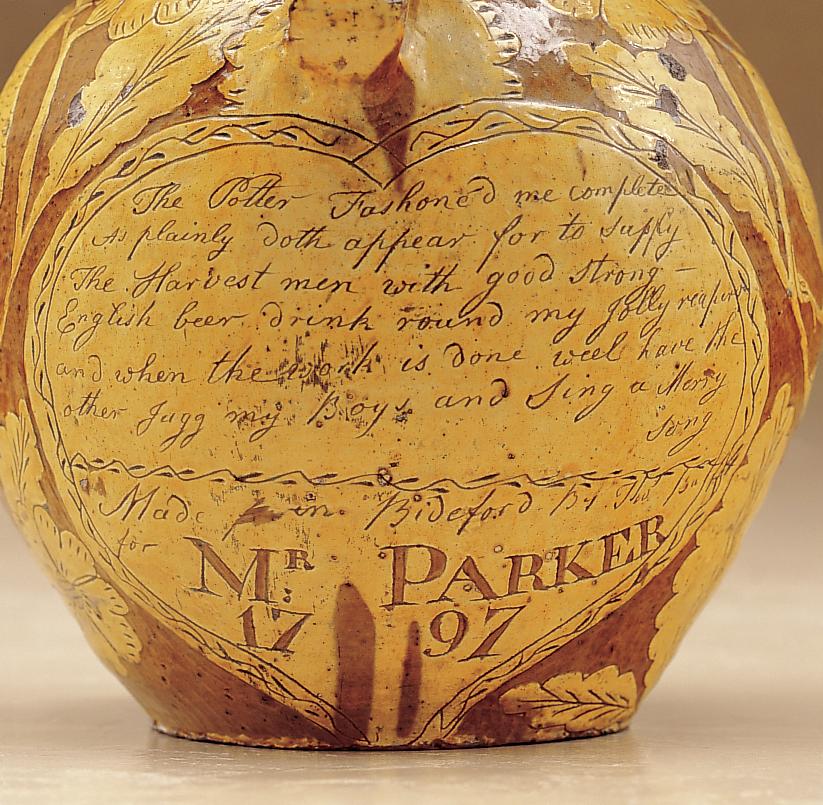 The Potter Fashone'd me complete
As plainly doth appear for to supply
The Harvest men with good strong –
English beer drink round my Jolly reapers
and when the work is done weel have the
other Jugg my Boys and Sing a Merry
song
Made in Bideford By
for
MR: PARKER
17 97